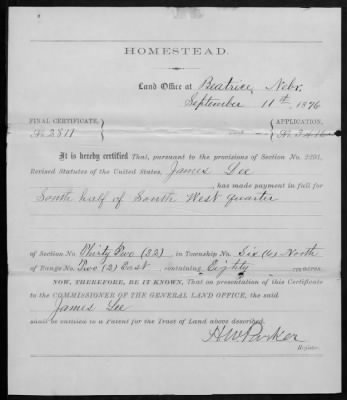 HOMESTEAD.
Land Office at Beatrice, Nebr.
September 11th, 1876
FINAL CERTIFICATE, APPLICATION,
No 2811 No
It is hereby certified That, pursuant to the provisions of Section No. 2291,
Revised Statutes of the United States, James Lee
has made payment in full for
South half of South West quarter
of Section No. Thirty Two (32) in Township No. Six (6) North
of Range No. Two (2) East containing Eighty acres.
NOW, THEREFORE, BE IT KNOWN, That on presentation of this Certificate
to the COMMISSIONER OF THE GENERAL LAND OFFICE, the said
James Lee
shall be entitled to a Patent for the Tract of Land above described.
H W Parker
Register.